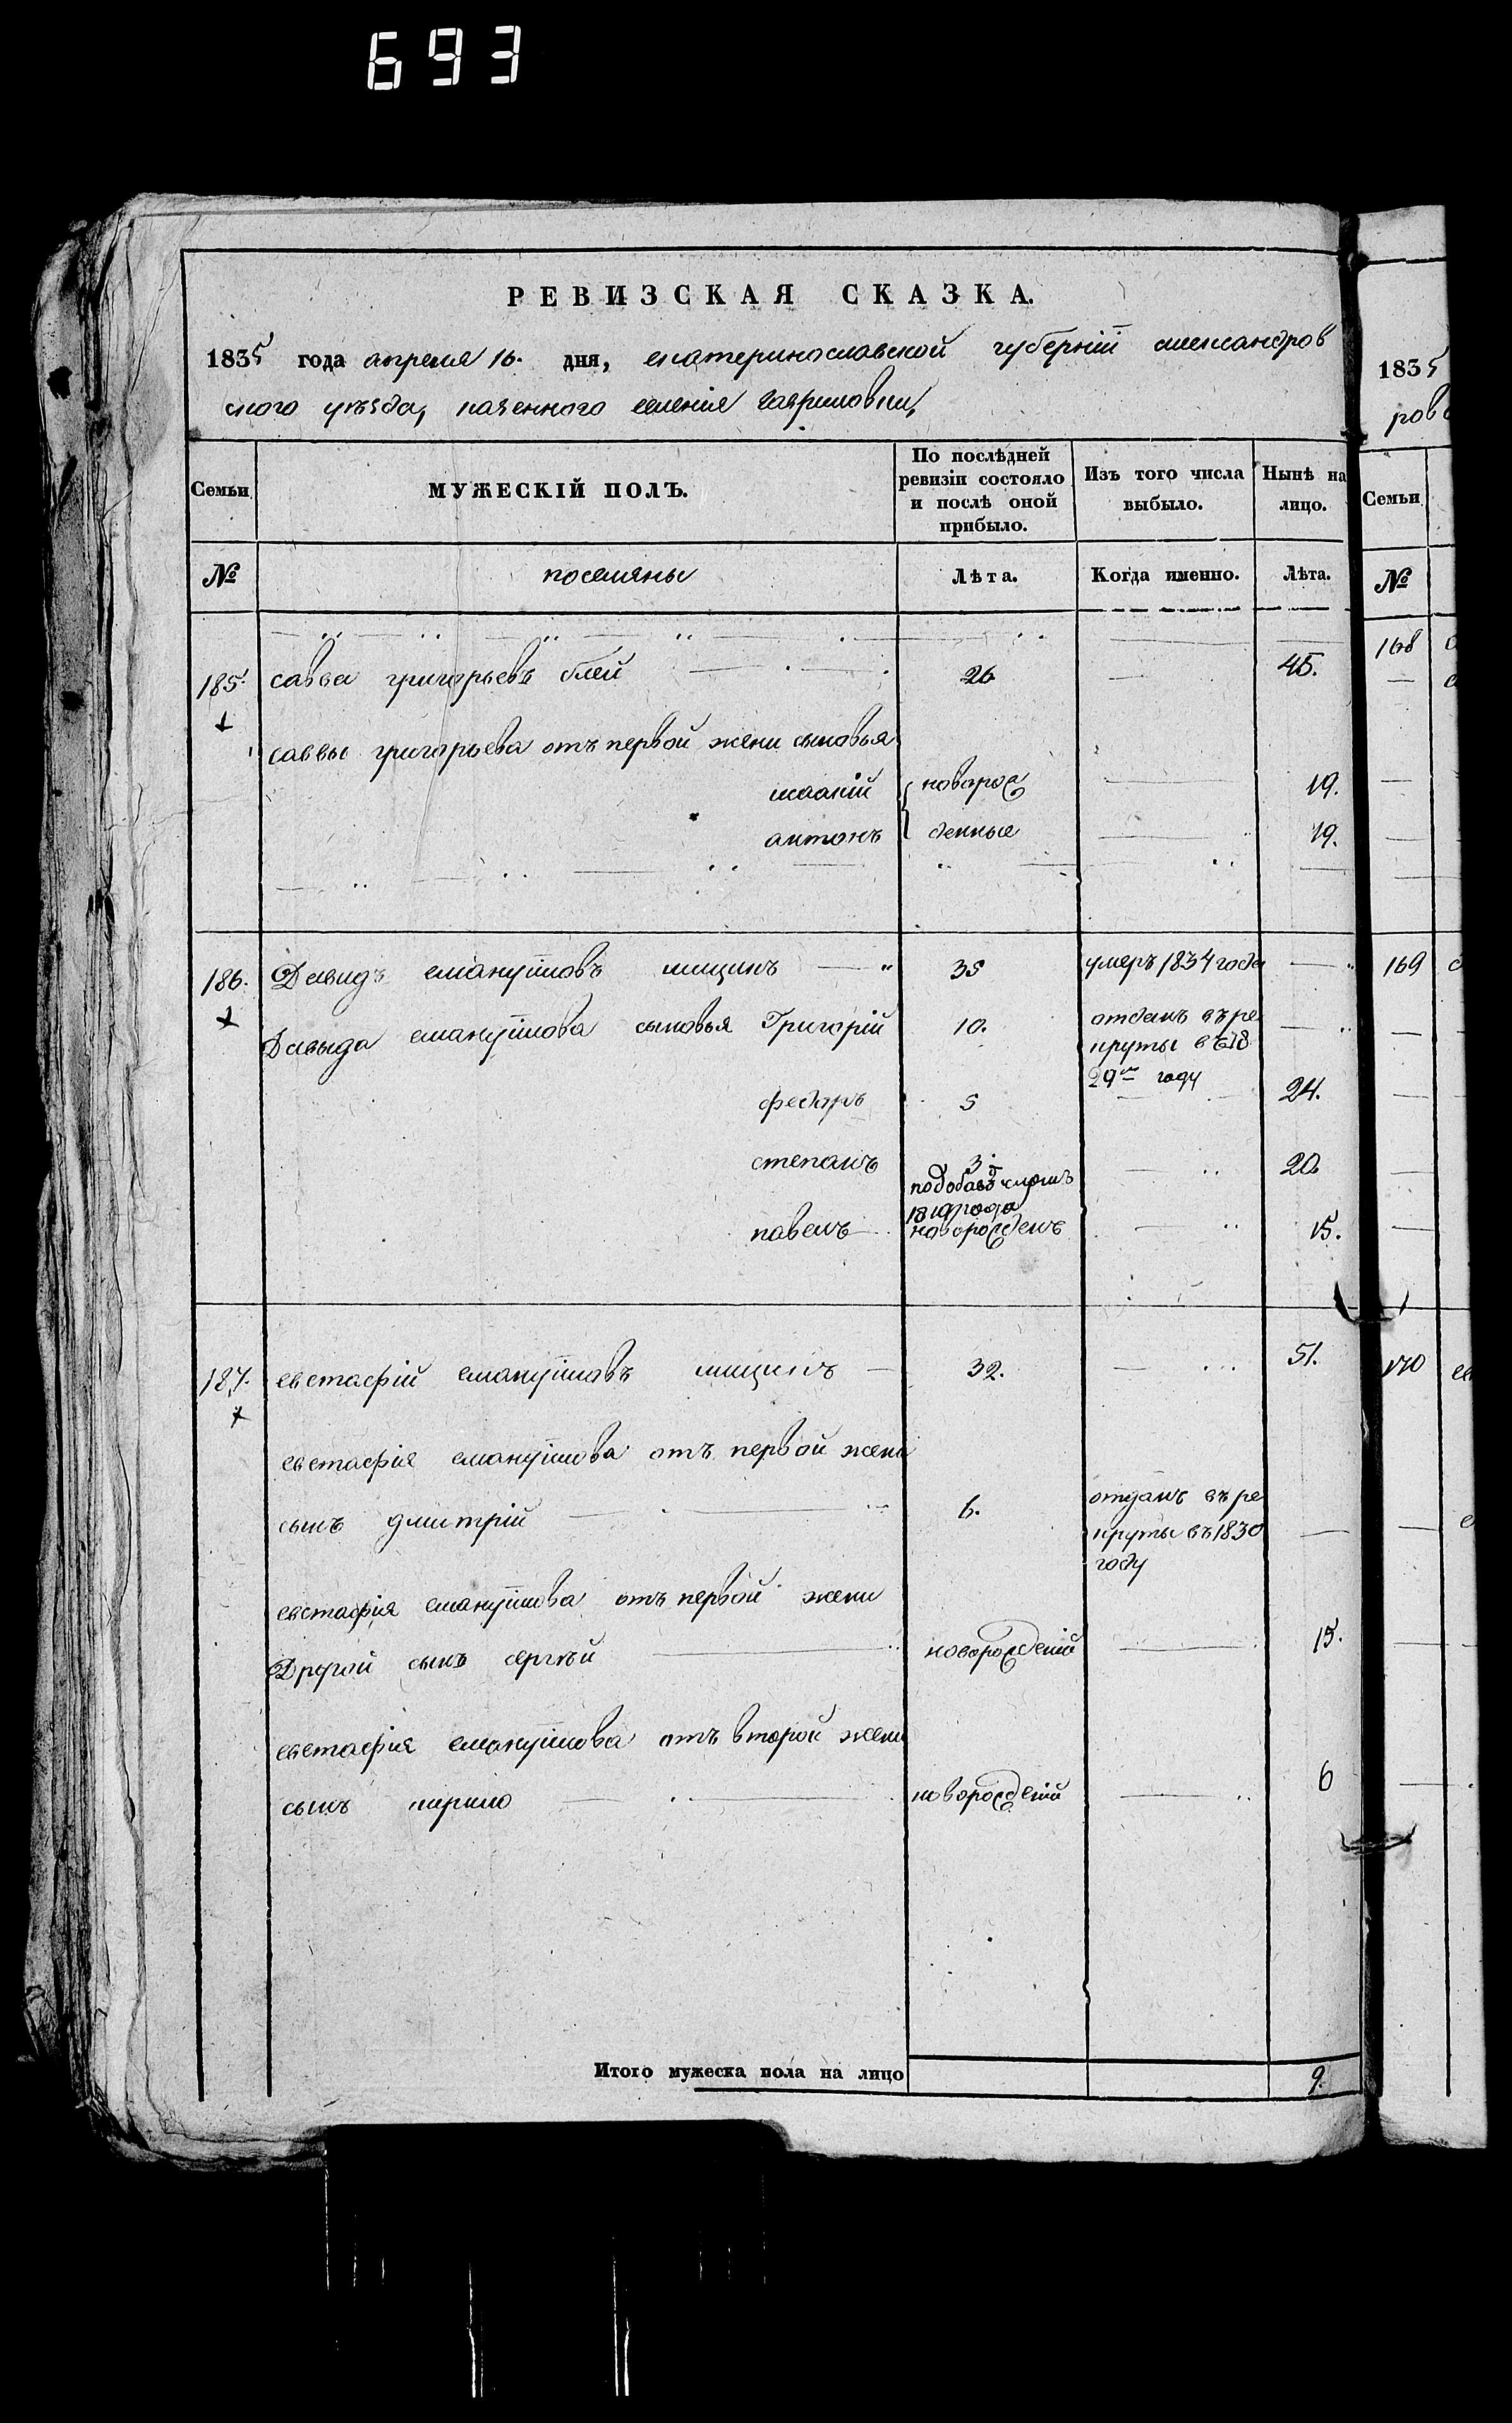 693
РЕВИЗСКАЯ СКАЗКА.
1835 года апреля 16. дня, екатеринославской губерніи александров
ского уѣзда, казенного селенія гавриловки,
Семьи
МУЖЕСКІЙ ПОЛЪ.
По послѣдней ревизіи состояло и послѣ оной прибыло.
Изъ того числа выбыло.
Нынѣ на лицо.
№
поселяны
Лѣта.
Когда именно.
Лѣта.
185. савва григорьевъ 26 45.
саввы григорьева отъ первой жени сыновья
новарож 19.
антонъ денные 19.
186. Давидъ емануиловъ 35 умеръ 1834 года
Давыда емануилова сыновья Григорій 10. отданъ въ ре
круты в 18
29м году
федоръ 5 24.
степанъ 3. 20.
1819 года
павелъ новорожденъ 15.
187. евстафій емануиловъ 32. 51.
евстафія емануилова отъ первой жени
сынъ дмитрій 6. отданъ въ ре
круты въ 1830
году
евстафія емануилова отъ первой жени
Другой сынъ сергѣй новорожденій 15.
евстафія емануилова отъ второй жени
сынъ кирило новорожденій 6
Итого мужеска пола на лицо 9.
1835
ров
Семьи
№
168
169
170